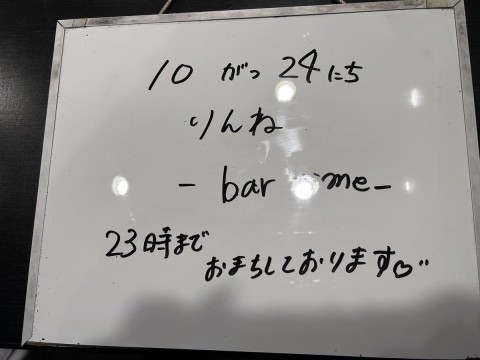 10 がつ 24にち
りんね
- bar time -
23時まで
おまちしております♡